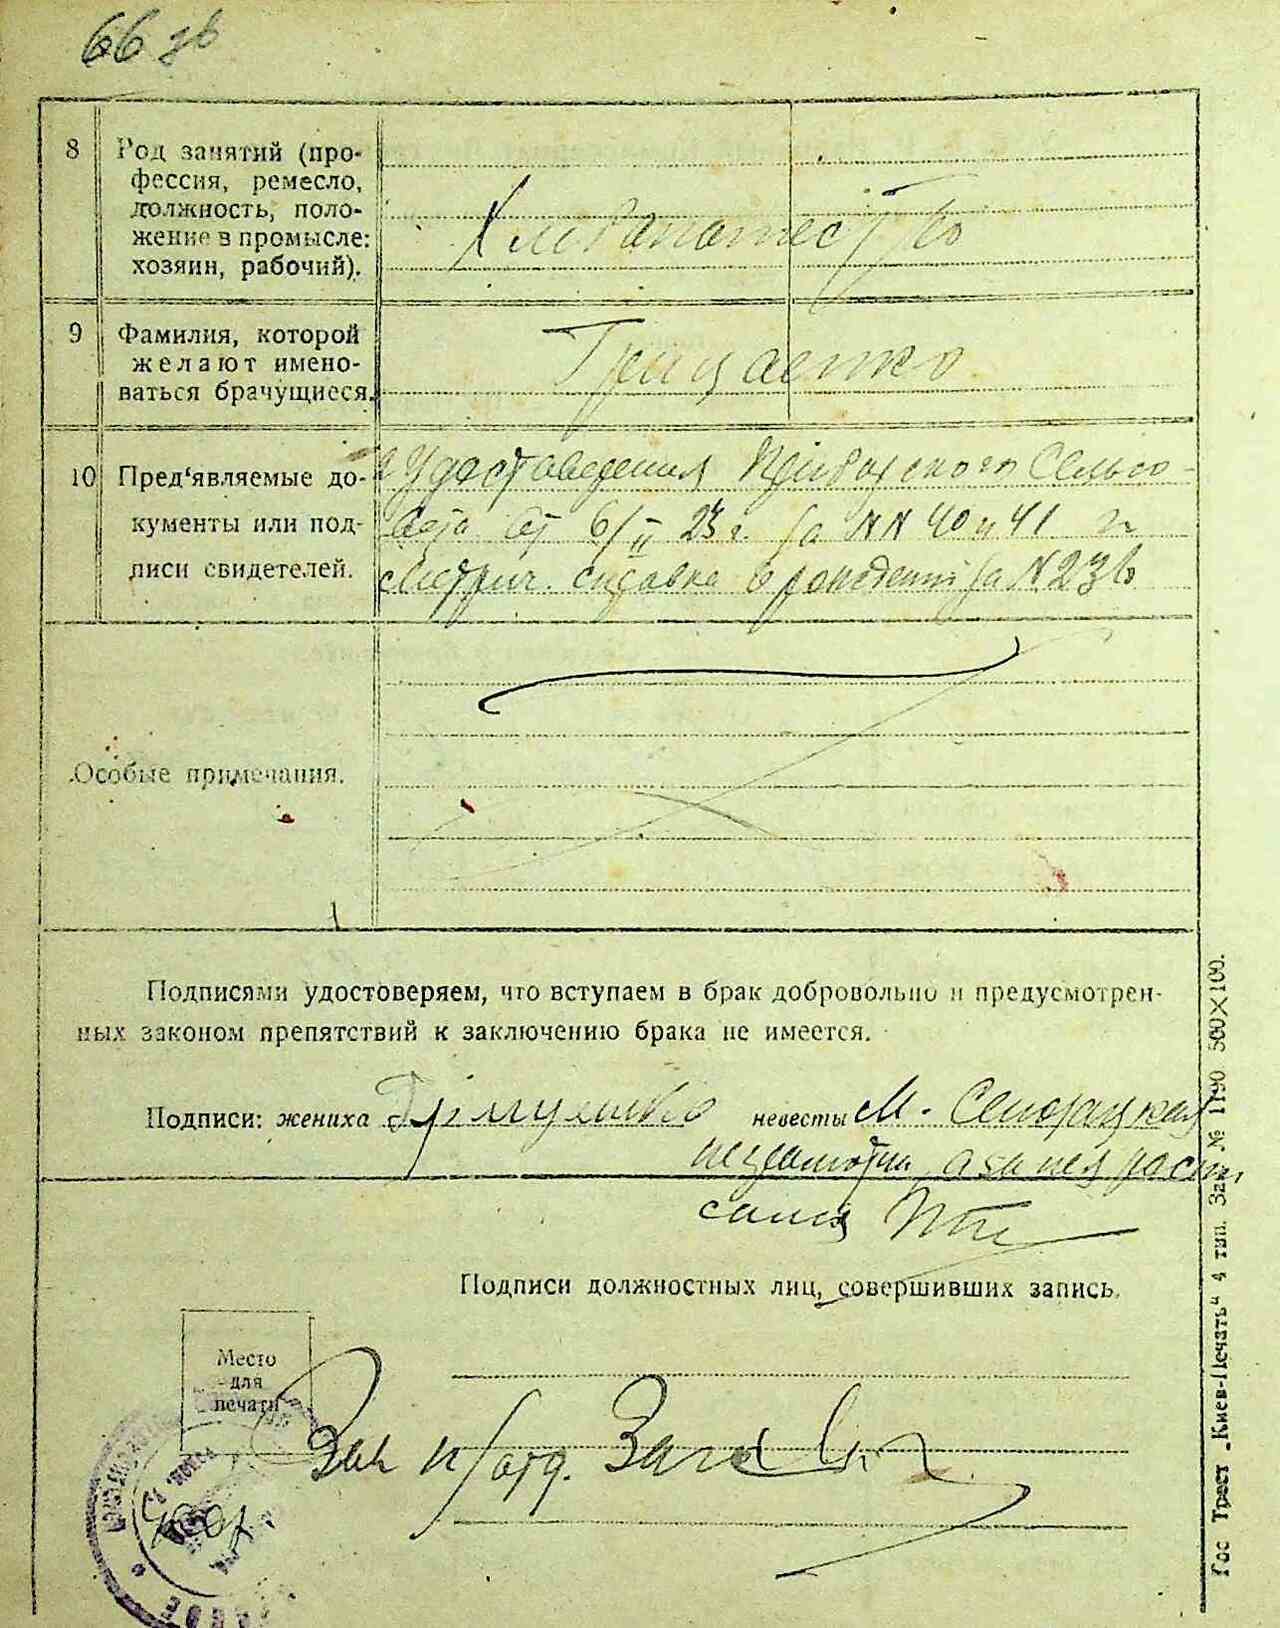 66 зв
8 Род занятий (про-
фессия, ремесло,
должность, поло-
жение в промысле:
хозяин, рабочий).
9 Фамилия, которой
желают имено-
ваться брачущиеся.
10 Пред'являемые до-
кументы или под-
писи свидетелей.
Удостоверения Сельсо-
вета от 6/II 23 г. за NN 40 и 41 и
Метрич. справка о рождении за N 236
Особые примечания.
Подписями удостоверяем, что вступаем в брак добровольно и предусмотрен-
ных законом препятствий к заключению брака не имеется.
Подписи: жениха невесты М.
неграмотна, а за нея распи
сался
Подписи должностных лиц, совершивших запись.
Место
для
печати
Зав п/отд. Загса
Гос Трест „Киев-Печать“ 4 тип. Зак № 1190 500×100.